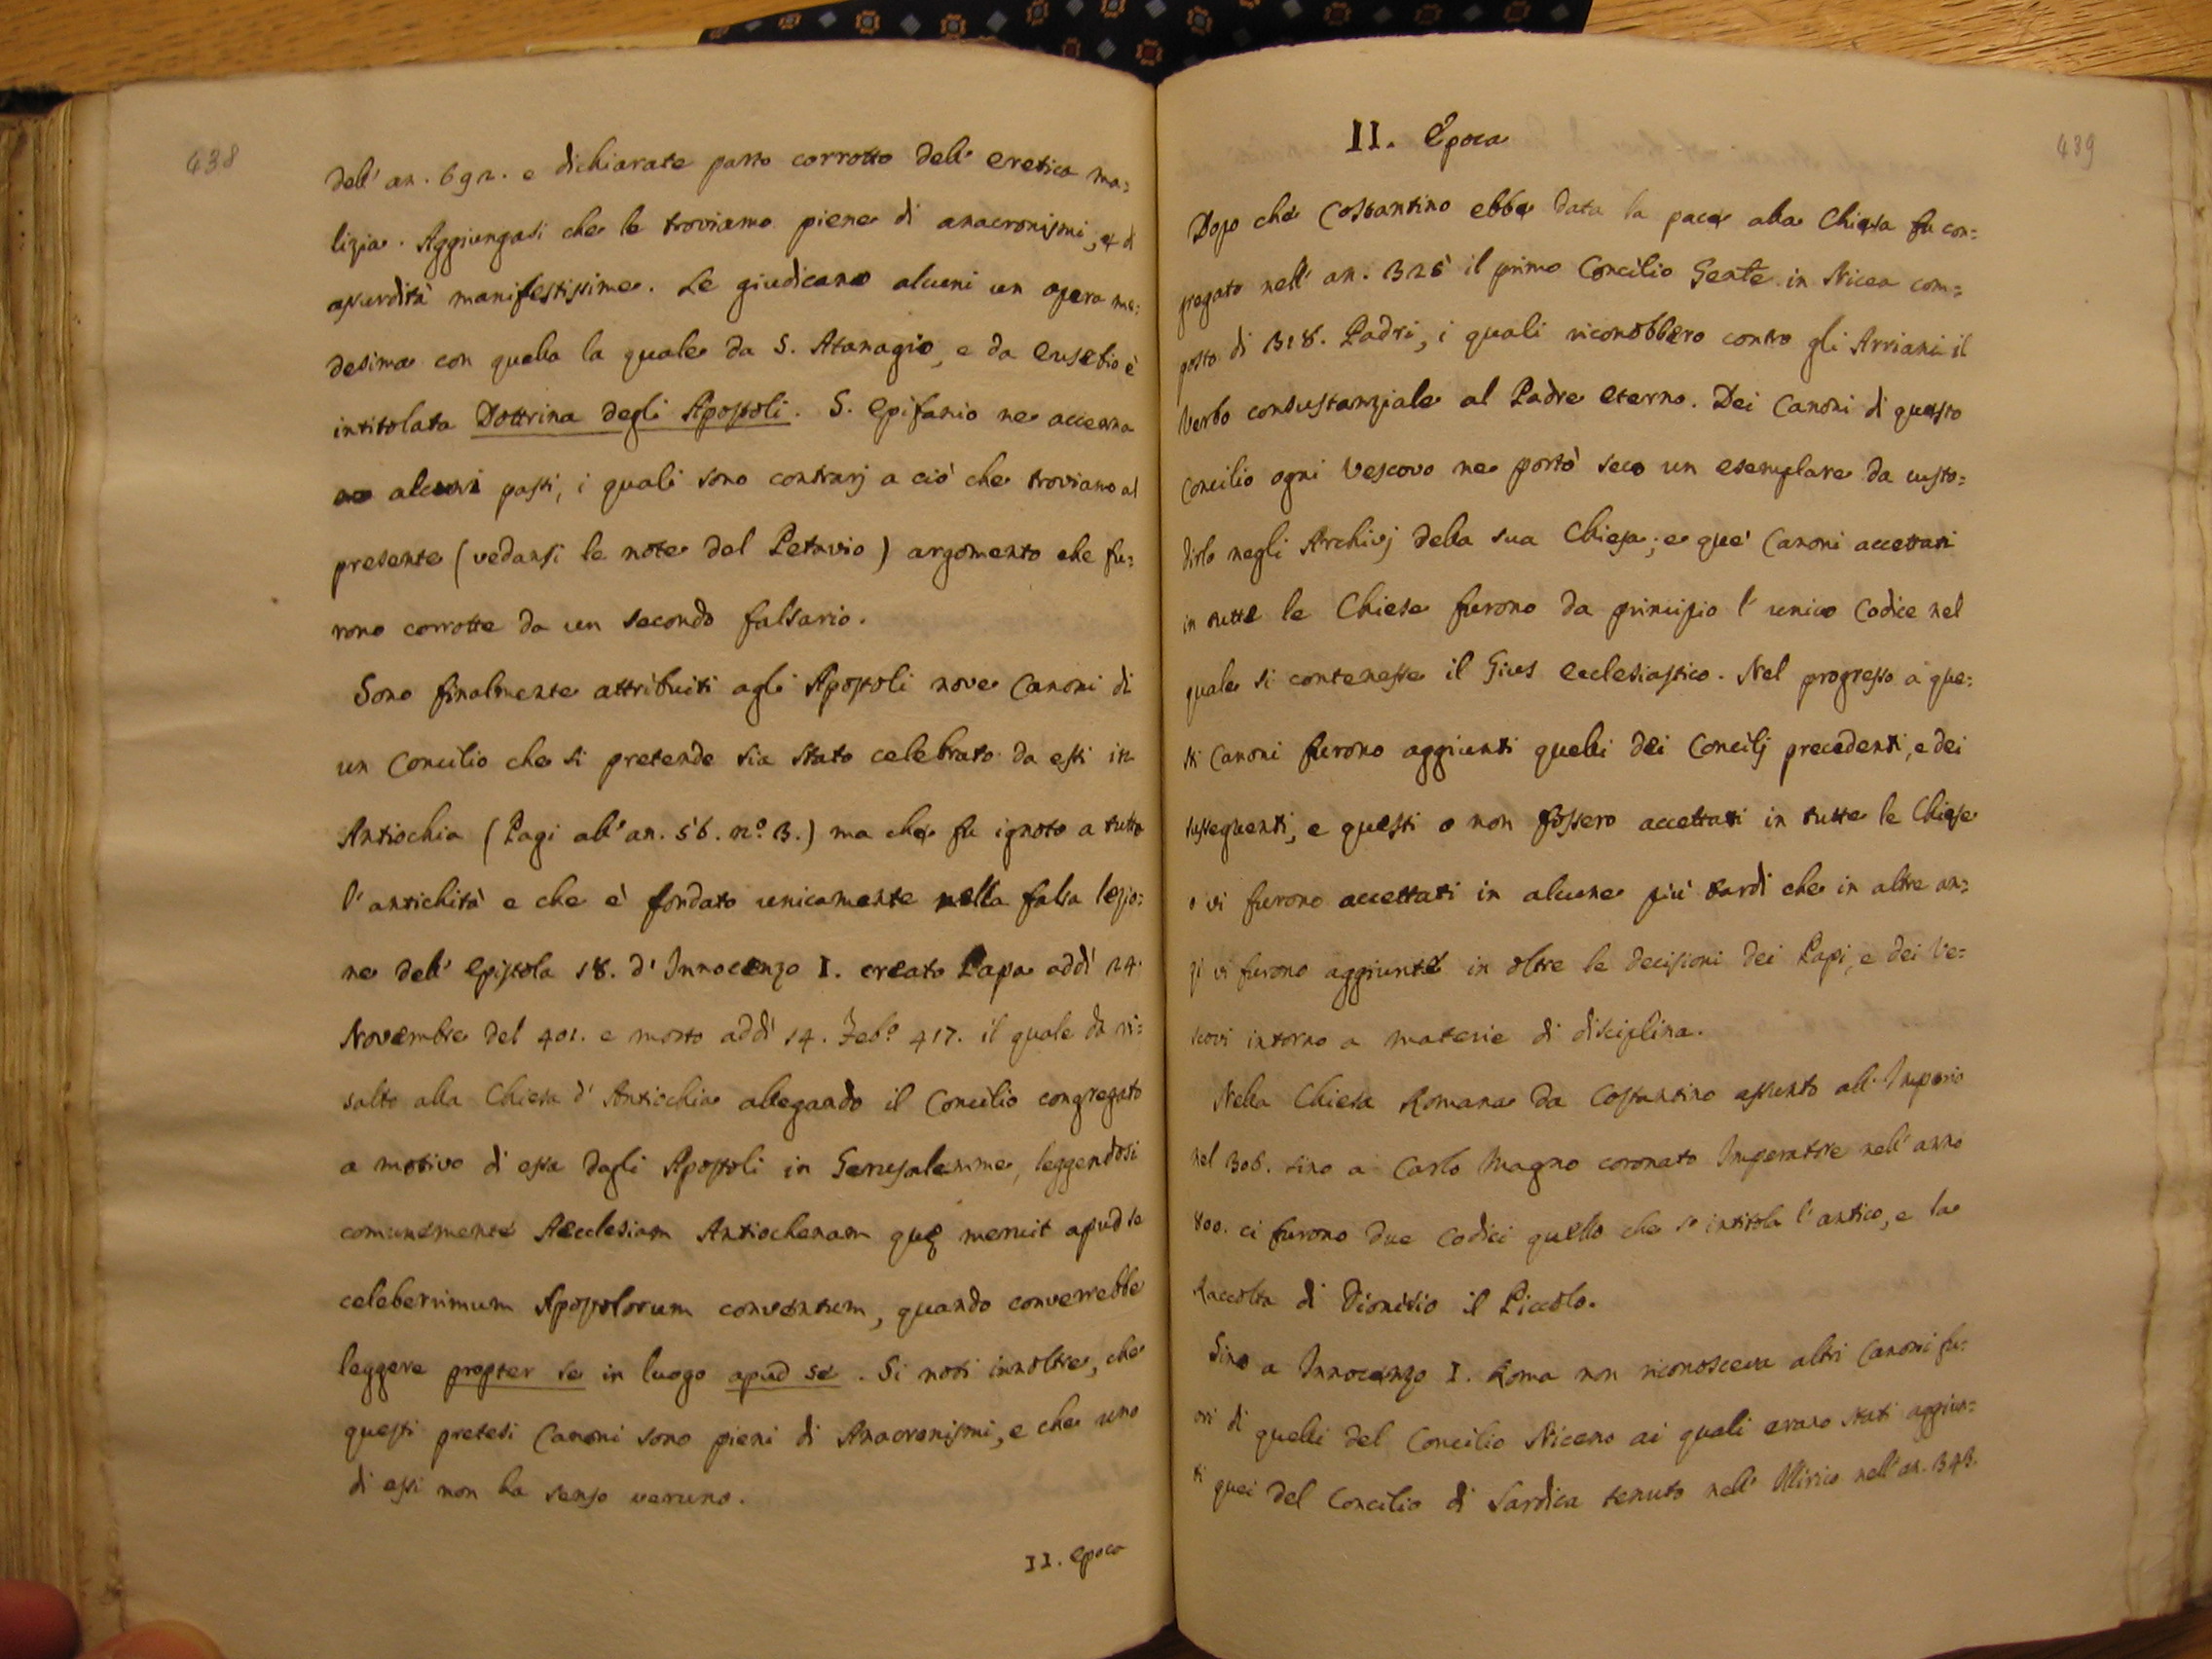 438
dell' an. 692. e dichiarate parto corrotto dell' eretica ma=
lizia. Aggiungasi che le troviamo piene di anacronismi, e d
assurdità manifestissime. Le giudicano alcuni un opera me=
desima con quella la quale da S. Atanagio, e da Eusebio è
intitolata Dottrina degli Apostoli. S. Epifanio ne accenna
alcuni passi, i quali sono contrarj a ciò che troviamo al
presente (vedansi le note del Petavio) argomento che fu=
rono corrotte da un secondo falsario.
Sono finalmente attribuiti agli Apostoli nove Canoni di
un Concilio che si pretende sia stato celebrato da essi in
Antiochia (Pagi all' an. 56. n.º 3.) ma che fu ignoto a tutta
l' antichità e che è fondato unicamente nella falsa lezio=
ne dell' Epistola 18. d' Innocenzo I. creato Papa addì 24.
Novembre del 401. e morto addì 14. Febº 417. il quale dà ri=
salto alla Chiesa d' Antiochia allegando il Concilio congregato
a motivo di essa dagli Apostoli in Gerusalemme, leggendosi
comunemente Aecclesiam Antiochenam quę meruit apud se
celeberrimum Apostolorum conventum, quando converrebbe
leggere propter se in luogo apud se. Si noti innoltre, che
questi pretesi Canoni sono pieni di Anacronismi, e che uno
di essi non ha senso veruno.
II. Epoca
439
II. Epoca
Dopo che Costantino ebbe data la pace alla Chiesa fu con=
gregato nell' an. 325 il primo Concilio Genle. in Nicea com=
posto di 318. Padri, i quali riconobbero contro gli Arriani il
Verbo consustanziale al Padre eterno. Dei Canoni di questo
Concilio ogni Vescovo ne portò seco un esemplare da custo=
dirlo negli Archivj della sua Chiesa; e que' Canoni accettati
in tutte le Chiese furono da principio l' unico Codice nel
quale si contenesse il Gius Ecclesiastico. Nel progresso a que=
sti Canoni furono aggiunti quelli dei Concilj precedenti, e dei
susseguenti, e questi o non fossero accettati in tutte le Chiese
o vi furono accettati in alcune più tardi che in altre an=
zi vi furono aggiunte in oltre le decisioni dei Papi, e dei Ve=
scovi intorno a materie di disciplina.
Nella Chiesa Romana da Costantino assunto all' Imperio
nel 306. sino a Carlo Magno coronato Imperatore nell' anno
800. ci furono due Codici quello che s' intitola l' antico, e la
Raccolta di Dionisio il Piccolo.
Sino a Innocenzo I. Roma non riconosceva altri Canoni fu=
ori di quelli del Concilio Niceno ai quali erano stati aggiun=
ti quei del Concilio di Sardica tenuto nell' Illirico nell' an. 343.